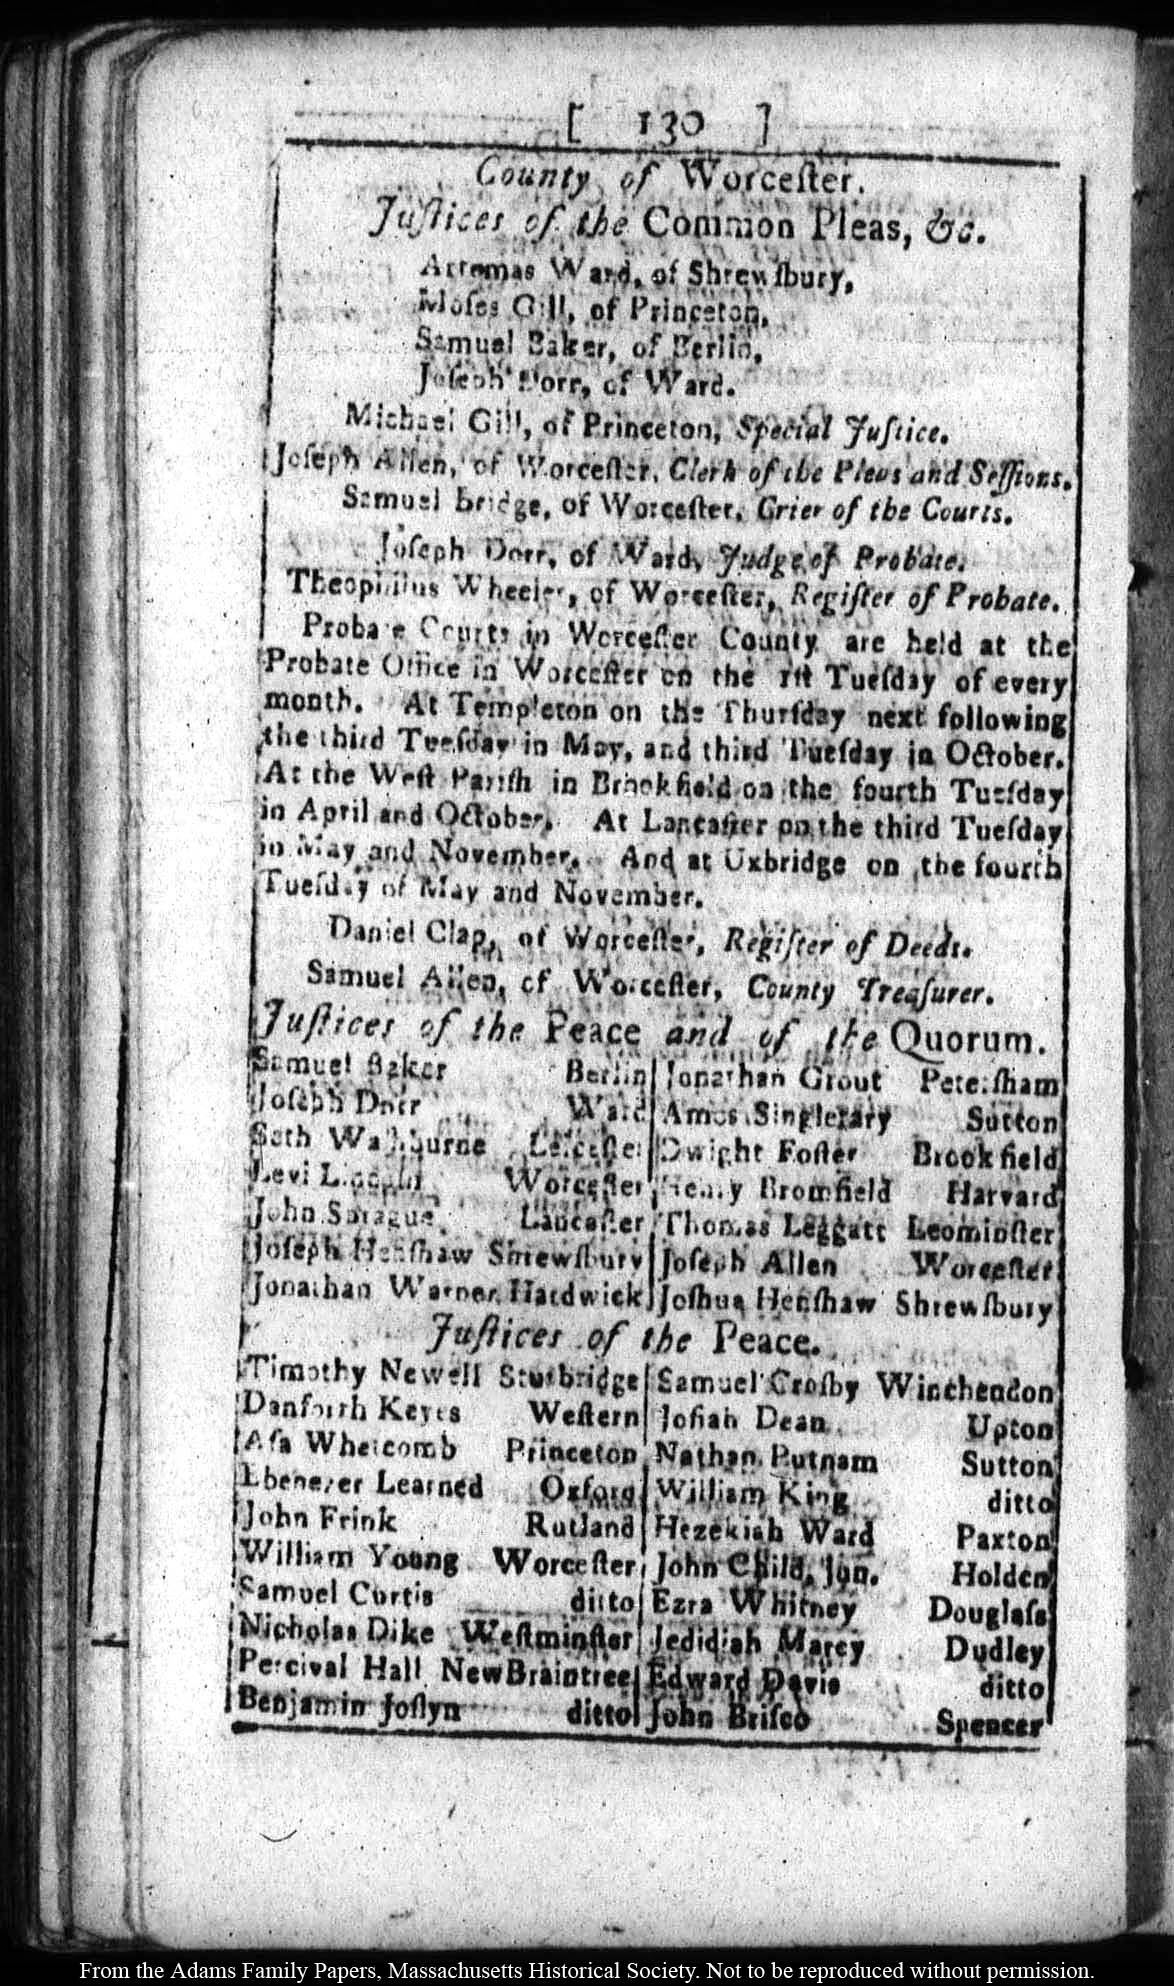 [ 130 ]
County of Worceſter.
Juſtices of the Common Pleas, &c.
Artemas Ward, of Shrewſbury,
Moſes Gill, of Princeton,
Samuel Baker, of Berlin,
Joſeph Dorr, of Ward.
Michael Gill, of Princeton, Special Juſtice.
Joſeph Allen, of Worceſter, Clerk of the Pleas and Seſſions.
Samuel Bridge, of Worceſter, Crier of the Courts.
Joſeph Dorr, of Ward, Judge of Probate.
Theophilus Wheeler, of Worceſter, Regiſter of Probate.
Probate Courts in Worceſter County are held at the
Probate Office in Worceſter on the 1ſt Tueſday of every
month. At Templeton on the Thurſday next following
the third Tueſday in May, and third Tueſday in October.
At the Weſt Pariſh in Brookfield on the fourth Tueſday
in April and October. At Lancaſter on the third Tueſday
in May and November. And at Uxbridge on the fourth
Tueſday of May and November.
Daniel Clap, of Worceſter, Regiſter of Deeds.
Samuel Allen, of Worceſter, County Treaſurer.
Juſtices of the Peace and of the Quorum.
Samuel Baker Berlin Jonathan Grout Peterſham
Joſeph Dorr Ward Amos Singletary Sutton
Seth Waſhburne Leiceſter Dwight Foſter Brookfield
Levi Lincoln Worceſter Henry Bromfield Harvard
John Sprague Lancaſter Thomas Leggatt Leominſter
Joſeph Henſhaw Shrewſbury Joſeph Allen Worceſter
Jonathan Warner Hardwick Joſhua Henſhaw Shrewſbury
Juſtices of the Peace.
Timothy Newell Sturbridge Samuel Croſby Winchendon
Danforth Keyes Weſtern Joſiah Dean Upton
Aſa Whetcomb Princeton Nathan Putnam Sutton
Ebenezer Learned Oxford William King ditto
John Frink Rutland Hezekiah Ward Paxton
William Young Worceſter John Child, jun. Holden
Samuel Curtis ditto Ezra Whitney Douglaſs
Nicholas Dike Weſtminſter Jedidiah Marcy Dudley
Percival Hall NewBraintree Edward Davis ditto
Benjamin Joſlyn ditto John Briſco Spencer
From the Adams Family Papers, Massachusetts Historical Society. Not to be reproduced without permission.